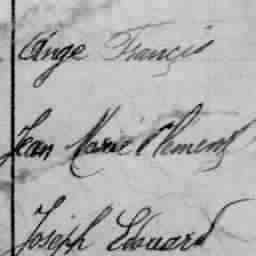 Ange François
Jean Marie Clément
Joseph Edouard